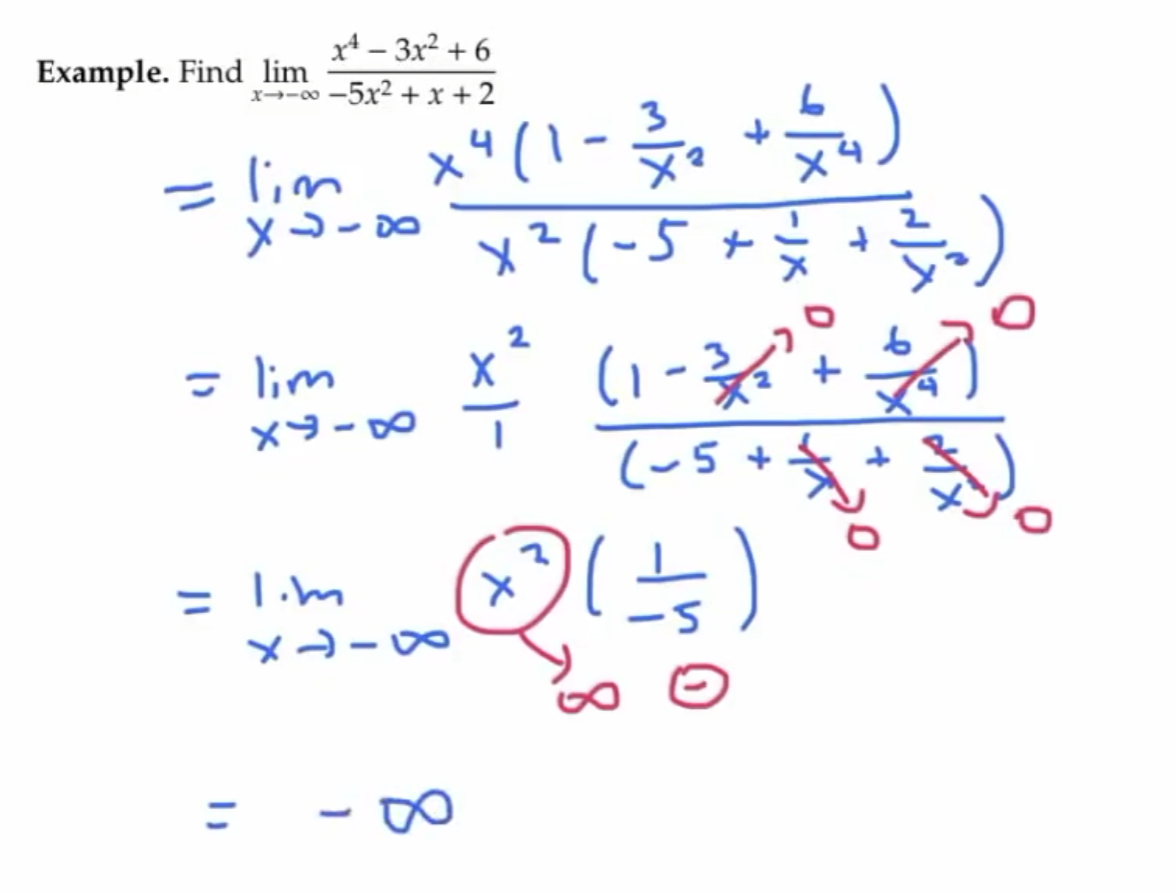 Example. Find lim x→−∞ (x⁴ − 3x² + 6)/(−5x² + x + 2)
= lim x→−∞ x⁴(1 − 3/x² + 6/x⁴)/x²(−5 + 1/x + 2/x²)
0 0
= lim x→−∞ x²/1 (1 − 3/x² + 6/x⁴)/(−5 + 1/x + 2/x²)
0 0
= lim x→−∞ x² (1/−5)
∞ −
= −∞